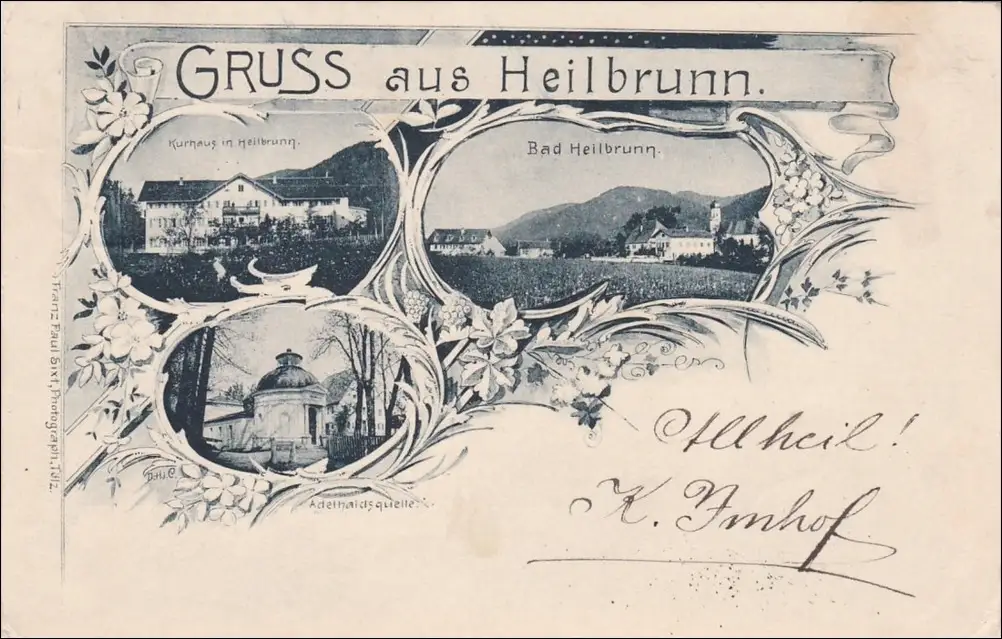 GRUSS aus Heilbrunn.
Kurhaus in Heilbrunn.
Bad Heilbrunn.
Adelhaidsquelle.
Franz Paul Sixt, Photograph, Tölz.
Allheil!
K. Imhof